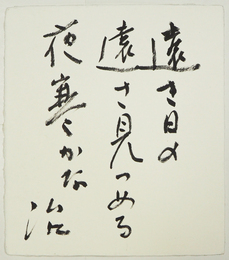 遠き日の
遠さ見つめる
夜寒かな 治